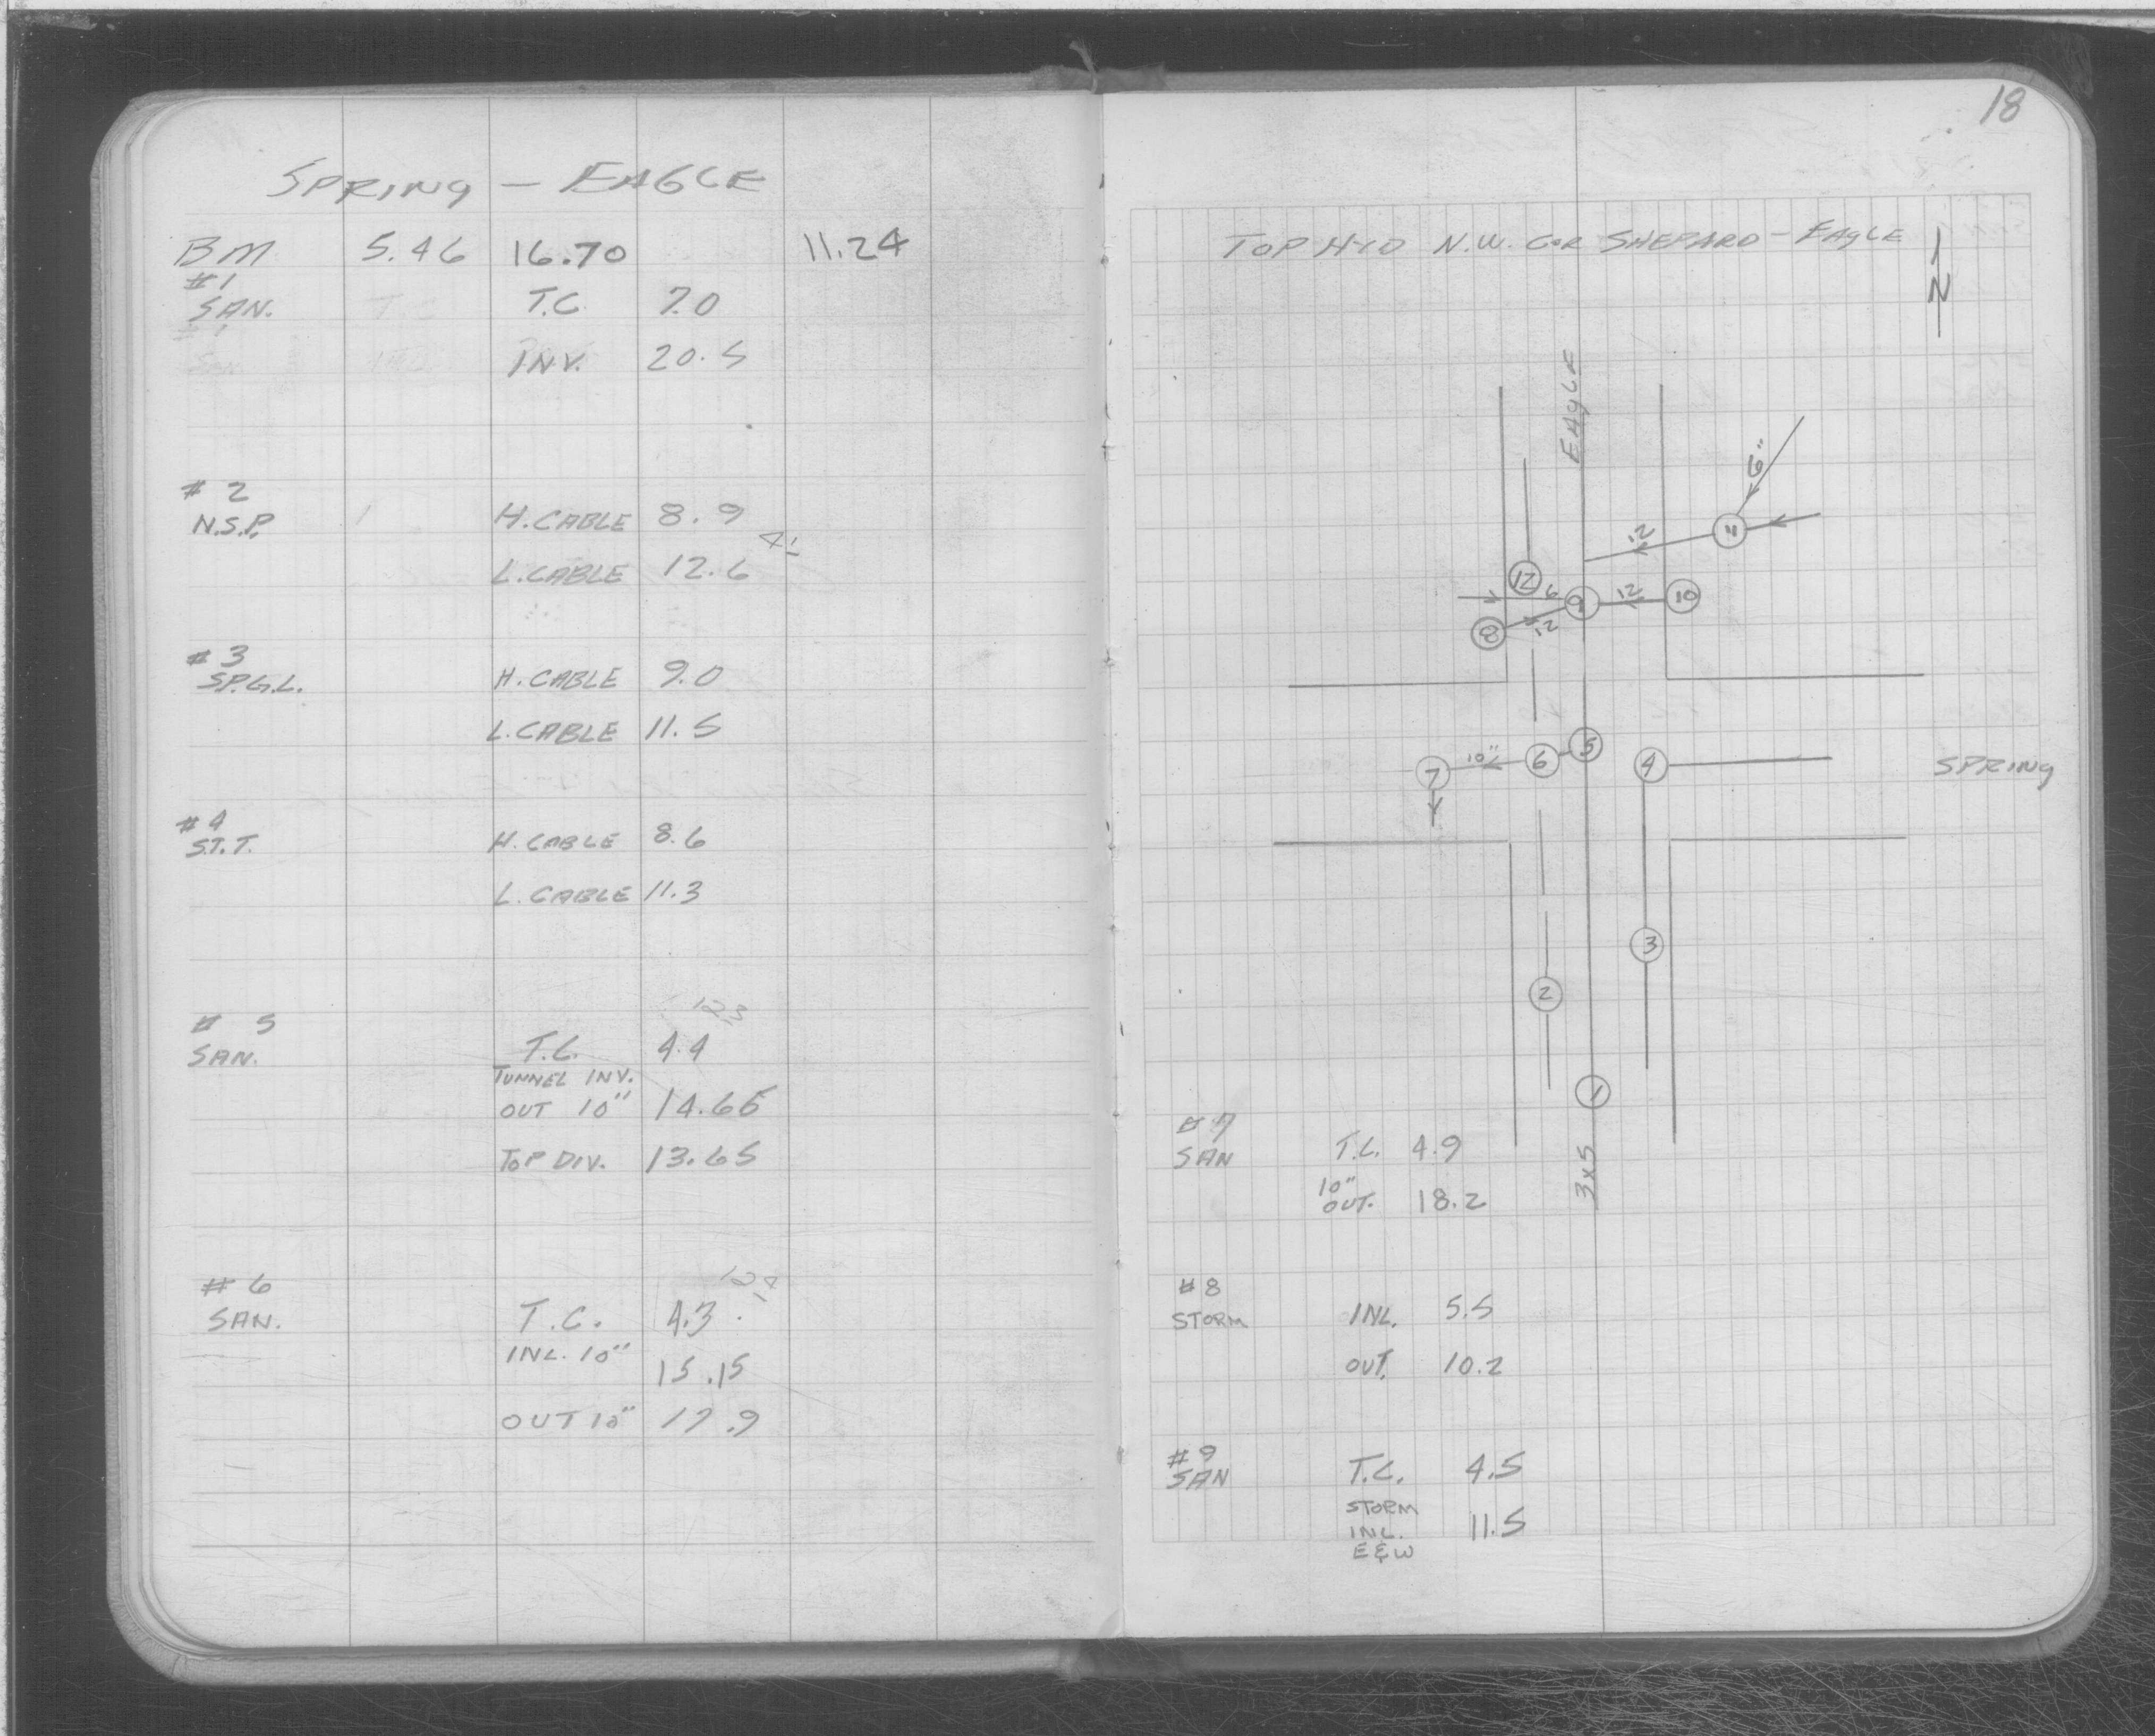 SPRING – EAGLE
BM 5.46 16.70 11.24
#1
SAN. T.C. 7.0
INV. 20.5
# 2
N.S.P. H.CABLE 8.9
L.CABLE 12.6
# 3
SP.G.L. H.CABLE 9.0
L.CABLE 11.5
# 4
S.T.T. H.CABLE 8.6
L.CABLE 11.3
# 5
SAN. T.C. 4.4
TUNNEL INV.
OUT 10" 14.65
TOP DIV. 13.65
# 6
SAN. T.C. 4.3
INL. 10" 15.15
OUT 10" 17.9
18
TOP HYD N.W. COR SHEPARD – EAGLE
N
EAGLE
6"
12
11
12
6
9
12
10
8
12
7
10"
6
5
4
SPRING
3
2
1
3x5
#7
SAN T.C. 4.9
10"
OUT. 18.2
#8
STORM INL. 5.5
OUT. 10.2
#9
SAN T.C. 4.5
STORM
INL. 11.5
E&W